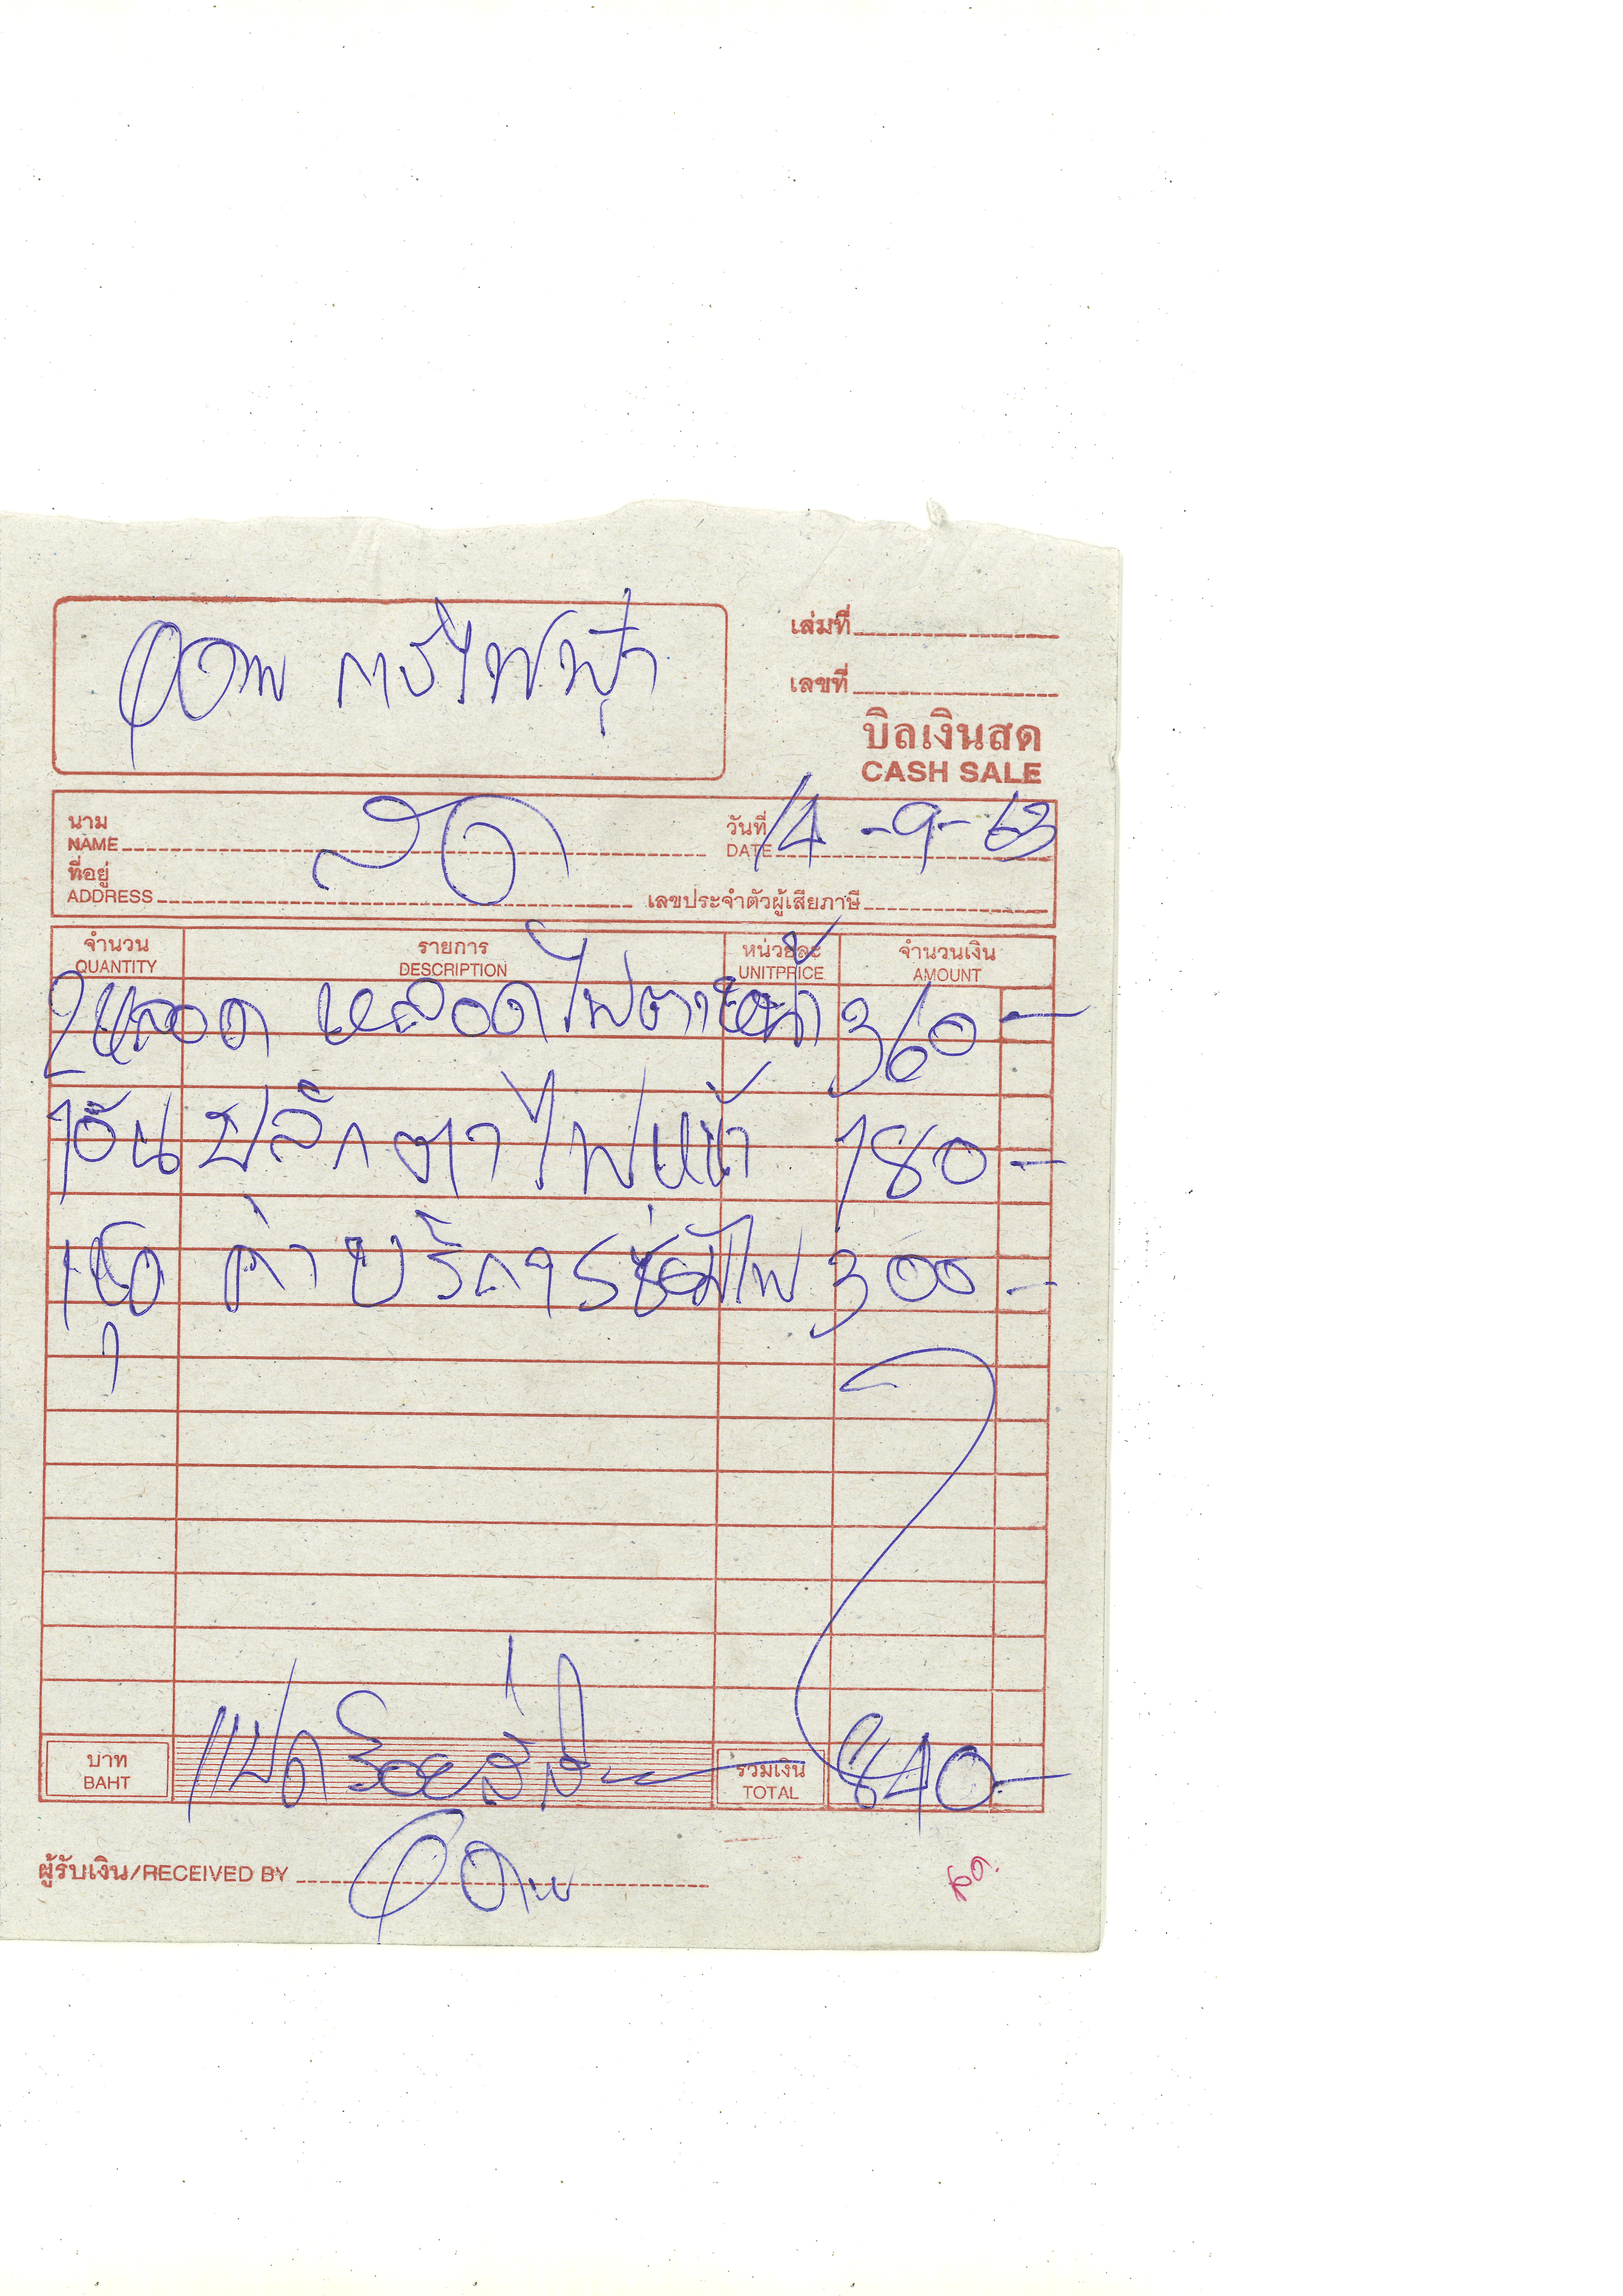 อุดม การไฟฟ้า
เล่มที่
เลขที่
บิลเงินสด
CASH SALE
นาม
NAME
สด
วันที่
DATE
14-9-63
ที่อยู่
ADDRESS
เลขประจำตัวผู้เสียภาษี
จำนวน รายการ หน่วยละ จำนวนเงิน
QUANTITY DESCRIPTION UNITPRICE AMOUNT
2หลอด หลอดไฟตาหน้า 360 -
1อัน ปลั๊กตาไฟหน้า 180 -
1ชุด ค่าบริการซ่อมไฟ 300 -
บาท
BAHT
แปดร้อยสี่สิ
รวมเงิน
TOTAL
840 -
ผู้รับเงิน/RECEIVED BY